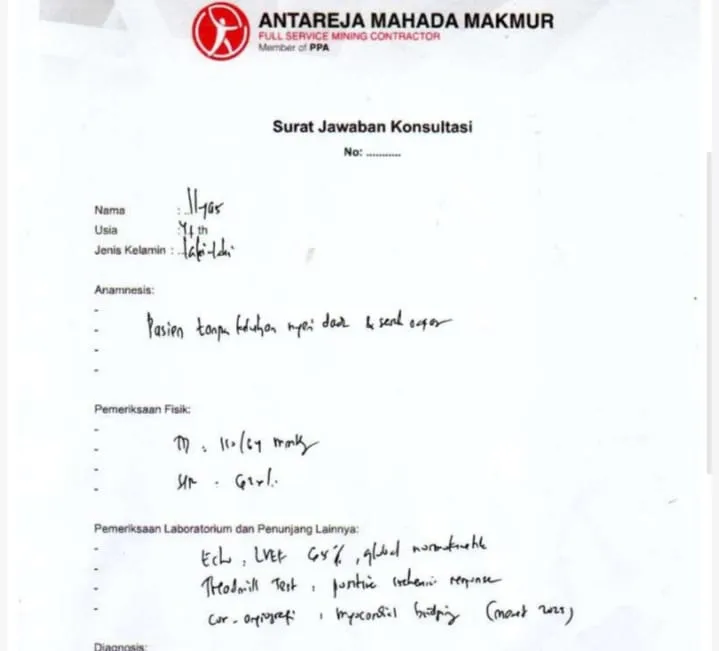 ANTAREJA MAHADA MAKMUR
FULL SERVICE MINING CONTRACTOR
Member of PPA
Surat Jawaban Konsultasi
No: ...........
Nama : Ilyas
Usia : th
Jenis Kelamin : laki-laki
Anamnesis:
-
- Pasien tanpa keluhan nyeri dada & sesak
-
-
Pemeriksaan Fisik:
-
- TD : 110/64 mmHg
-
- HR : 62x/.
Pemeriksaan Laboratorium dan Penunjang Lainnya:
- Echo, LVEF 65%, global normokinetik
- Treadmill Test, positive ischemic response
-
- Cor-angiografi, myocardial bridging (maret)
Diagnosis: